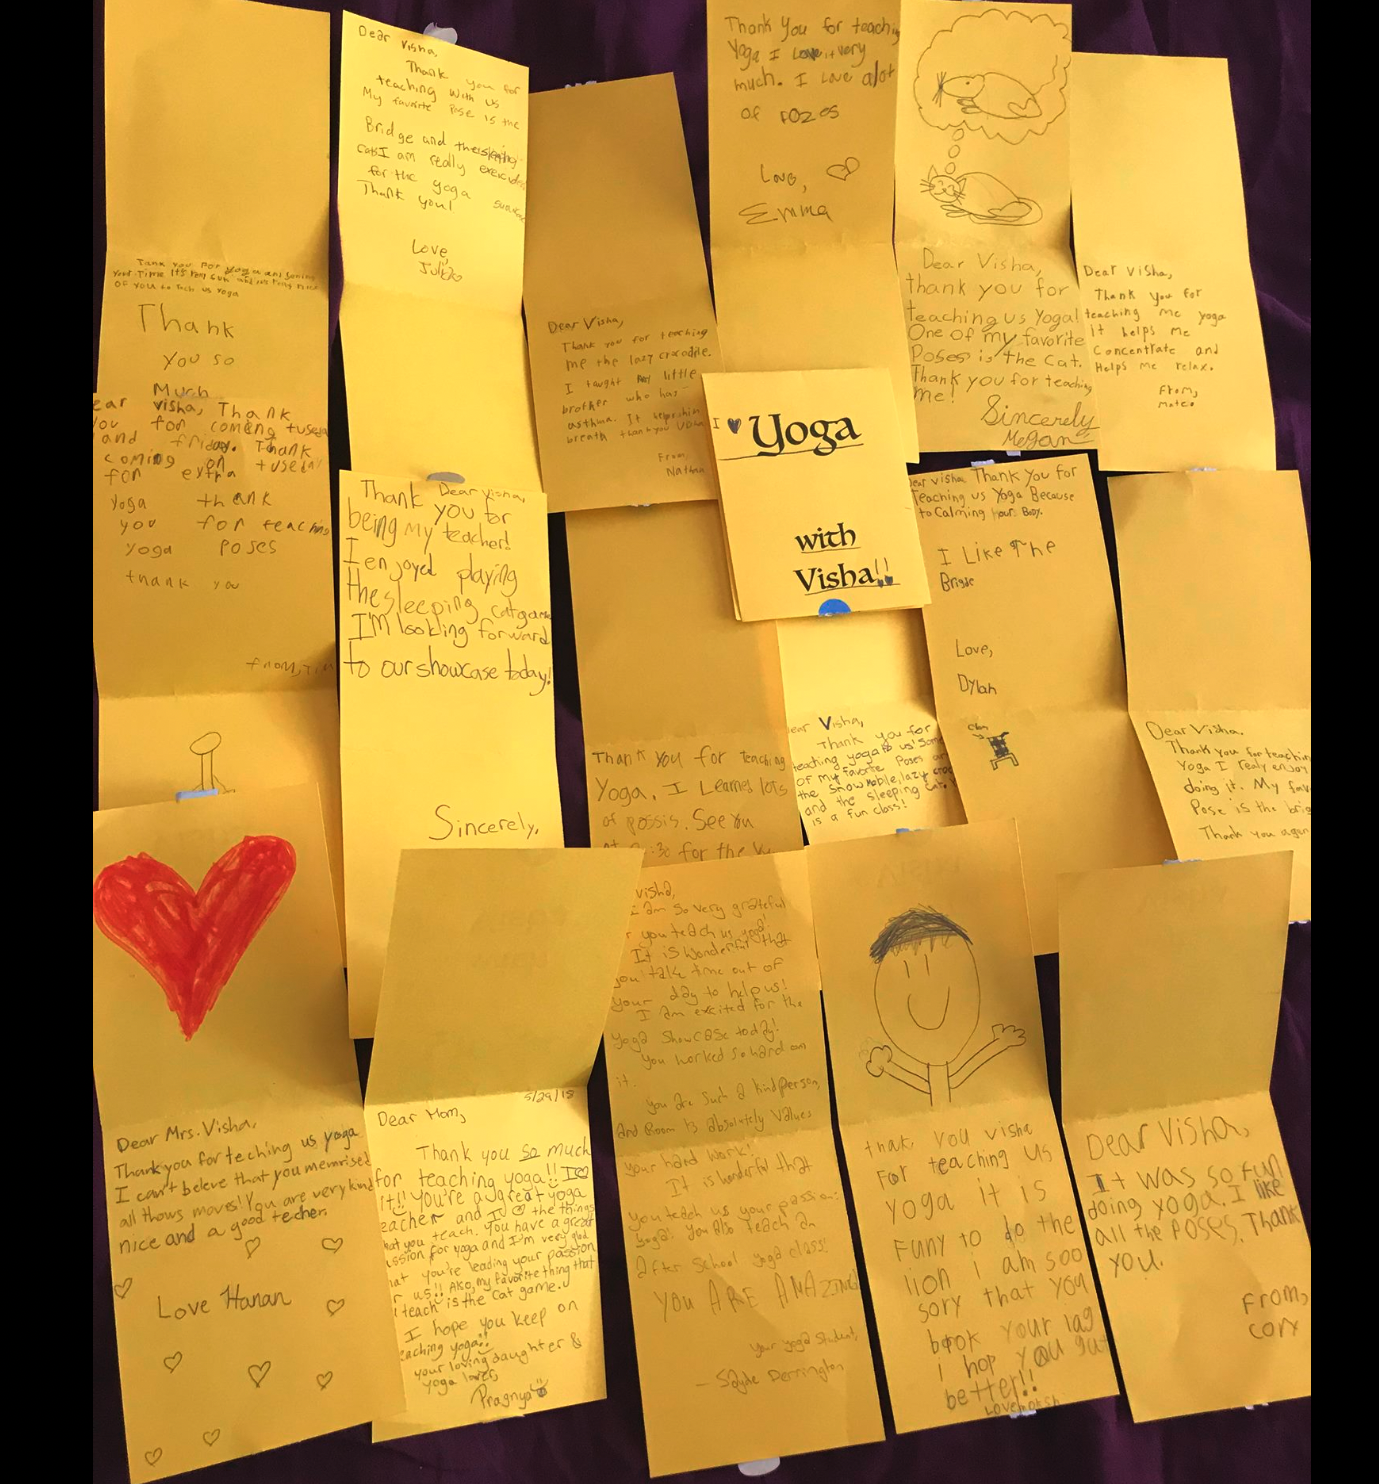 Tank you for yoga and
your Time It's
of you to tech us yoga
Thank
you so
Much
ear visha, Thank
ou for coming tuseda
and friday. Thank
coming on tuseda
for extra
yoga thank
you for teaching
yoga poses
thank you
from, Tim
Dear Visha,
Thank you for
teaching with us
My favorite Pose is the
Bridge and the sleping
cat I am really
for the yoga
Thank you!
Love,
Dear Visha,
Thank you for teaching
me the lazy crocodile.
I taught my little
brother who has
asthma. It
breath thank you Visha
From,
Nathan
Thank You for teaching
Yoga I Love it very
much. I Love alot
of Pozes
Love,
Emma
Dear Visha,
thank you for
teaching us Yoga!
One of my favorite
Poses is the Cat.
Thank you for teaching
me!
Sincerely
Megan
Dear Visha,
Thank you for
teaching me yoga
It helps me
Concentrate and
Helps me relax.
From,
Mateo
I Yoga
with
Visha!!
Dear Visha,
Thank you for
being my teacher!
I enjoyed playing
the sleeping cat game
I'M looking forward
to our showcase today!
Sincerely,
Thank you for teaching
Yoga. I Learned lots
of possis. See you
for the
ear Visha,
Thank you for
teaching yoga to us! Some
of my favorite Poses
the Snowmobile, lazy
and the sleeping cat.
is a fun class!
ear visha Thank You for
Teaching us Yoga Because
to Calming your Body.
I Like The
Brigge
Love,
Dylan
Dear Visha.
Thank you for teachin
Yoga I realy enjoy
doing it. My fav
Pose is the brig
Thank you agen
Dear Mrs. Visha,
Thank you for teching us yoga
I can't beleve that you memrised
all thows moves! You are very kind
nice and a good techer.
Love Hanan
5/29/18
Dear Mom,
Thank you so much
for teaching yoga!! I
it!! You're a great yoga
eacher and I the things
hat you teach. You have a great
assion for yoga and I'm very glad
hat you're leading your passion
r us!! Also, my favorite thing that
teach is the cat game.
I hope you keep on
eaching yoga!!
your loving daughter &
yoga lover,
Pragnya
Visha,
I am so very grateful
r you teach us yoga!
It is wonderful that
you take time out of
your day to help us!
I am excited for the
yoga showcase today!
You worked so hard on
it.
You are such a kind person,
and Room 13 absolutely values
your hard work!
It is wonderful that
you teach us your passion:
yoga! You also teach an
after School yoga class!
YOU ARE AMAZING!
your yoga student,
- Sadie Derrington
thak you visha
For teaching us
yoga it is
Funy to do the
lion i am soo
sory that you
brook your lag
i hop you gat
better!!
Dear Visha,
It was so fun
doing yoga. I like
all the Poses. Thank
you.
From,
Cory